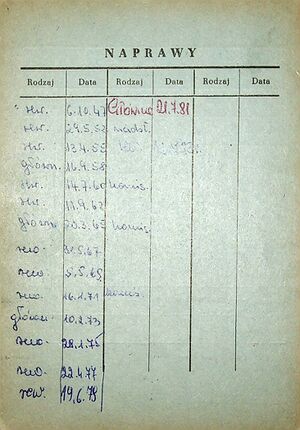 NAPRAWY
Rodzaj Data Rodzaj Data Rodzaj Data
rew. 6.10.47 Główna 21.7.81
rew. 29.5.52
rew. 13.4.55
główn. 16.9.58
rew. 14.7.60
rew. 11.9.62
główna 20.3.65
rew. 31.5.67
rew. 5.5.69
rew. 16.1.71
główn. 10.2.73
rew. 28.1.75
rew. 22.4.77
rew. 19.6.79